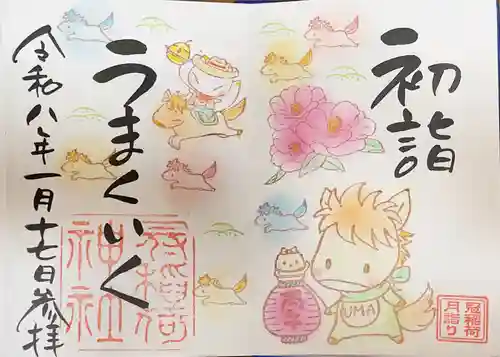 初詣
うまくいく
令和八年一月十七日参拝
冠稲荷
神社
UMA
冠稲荷
月詣り